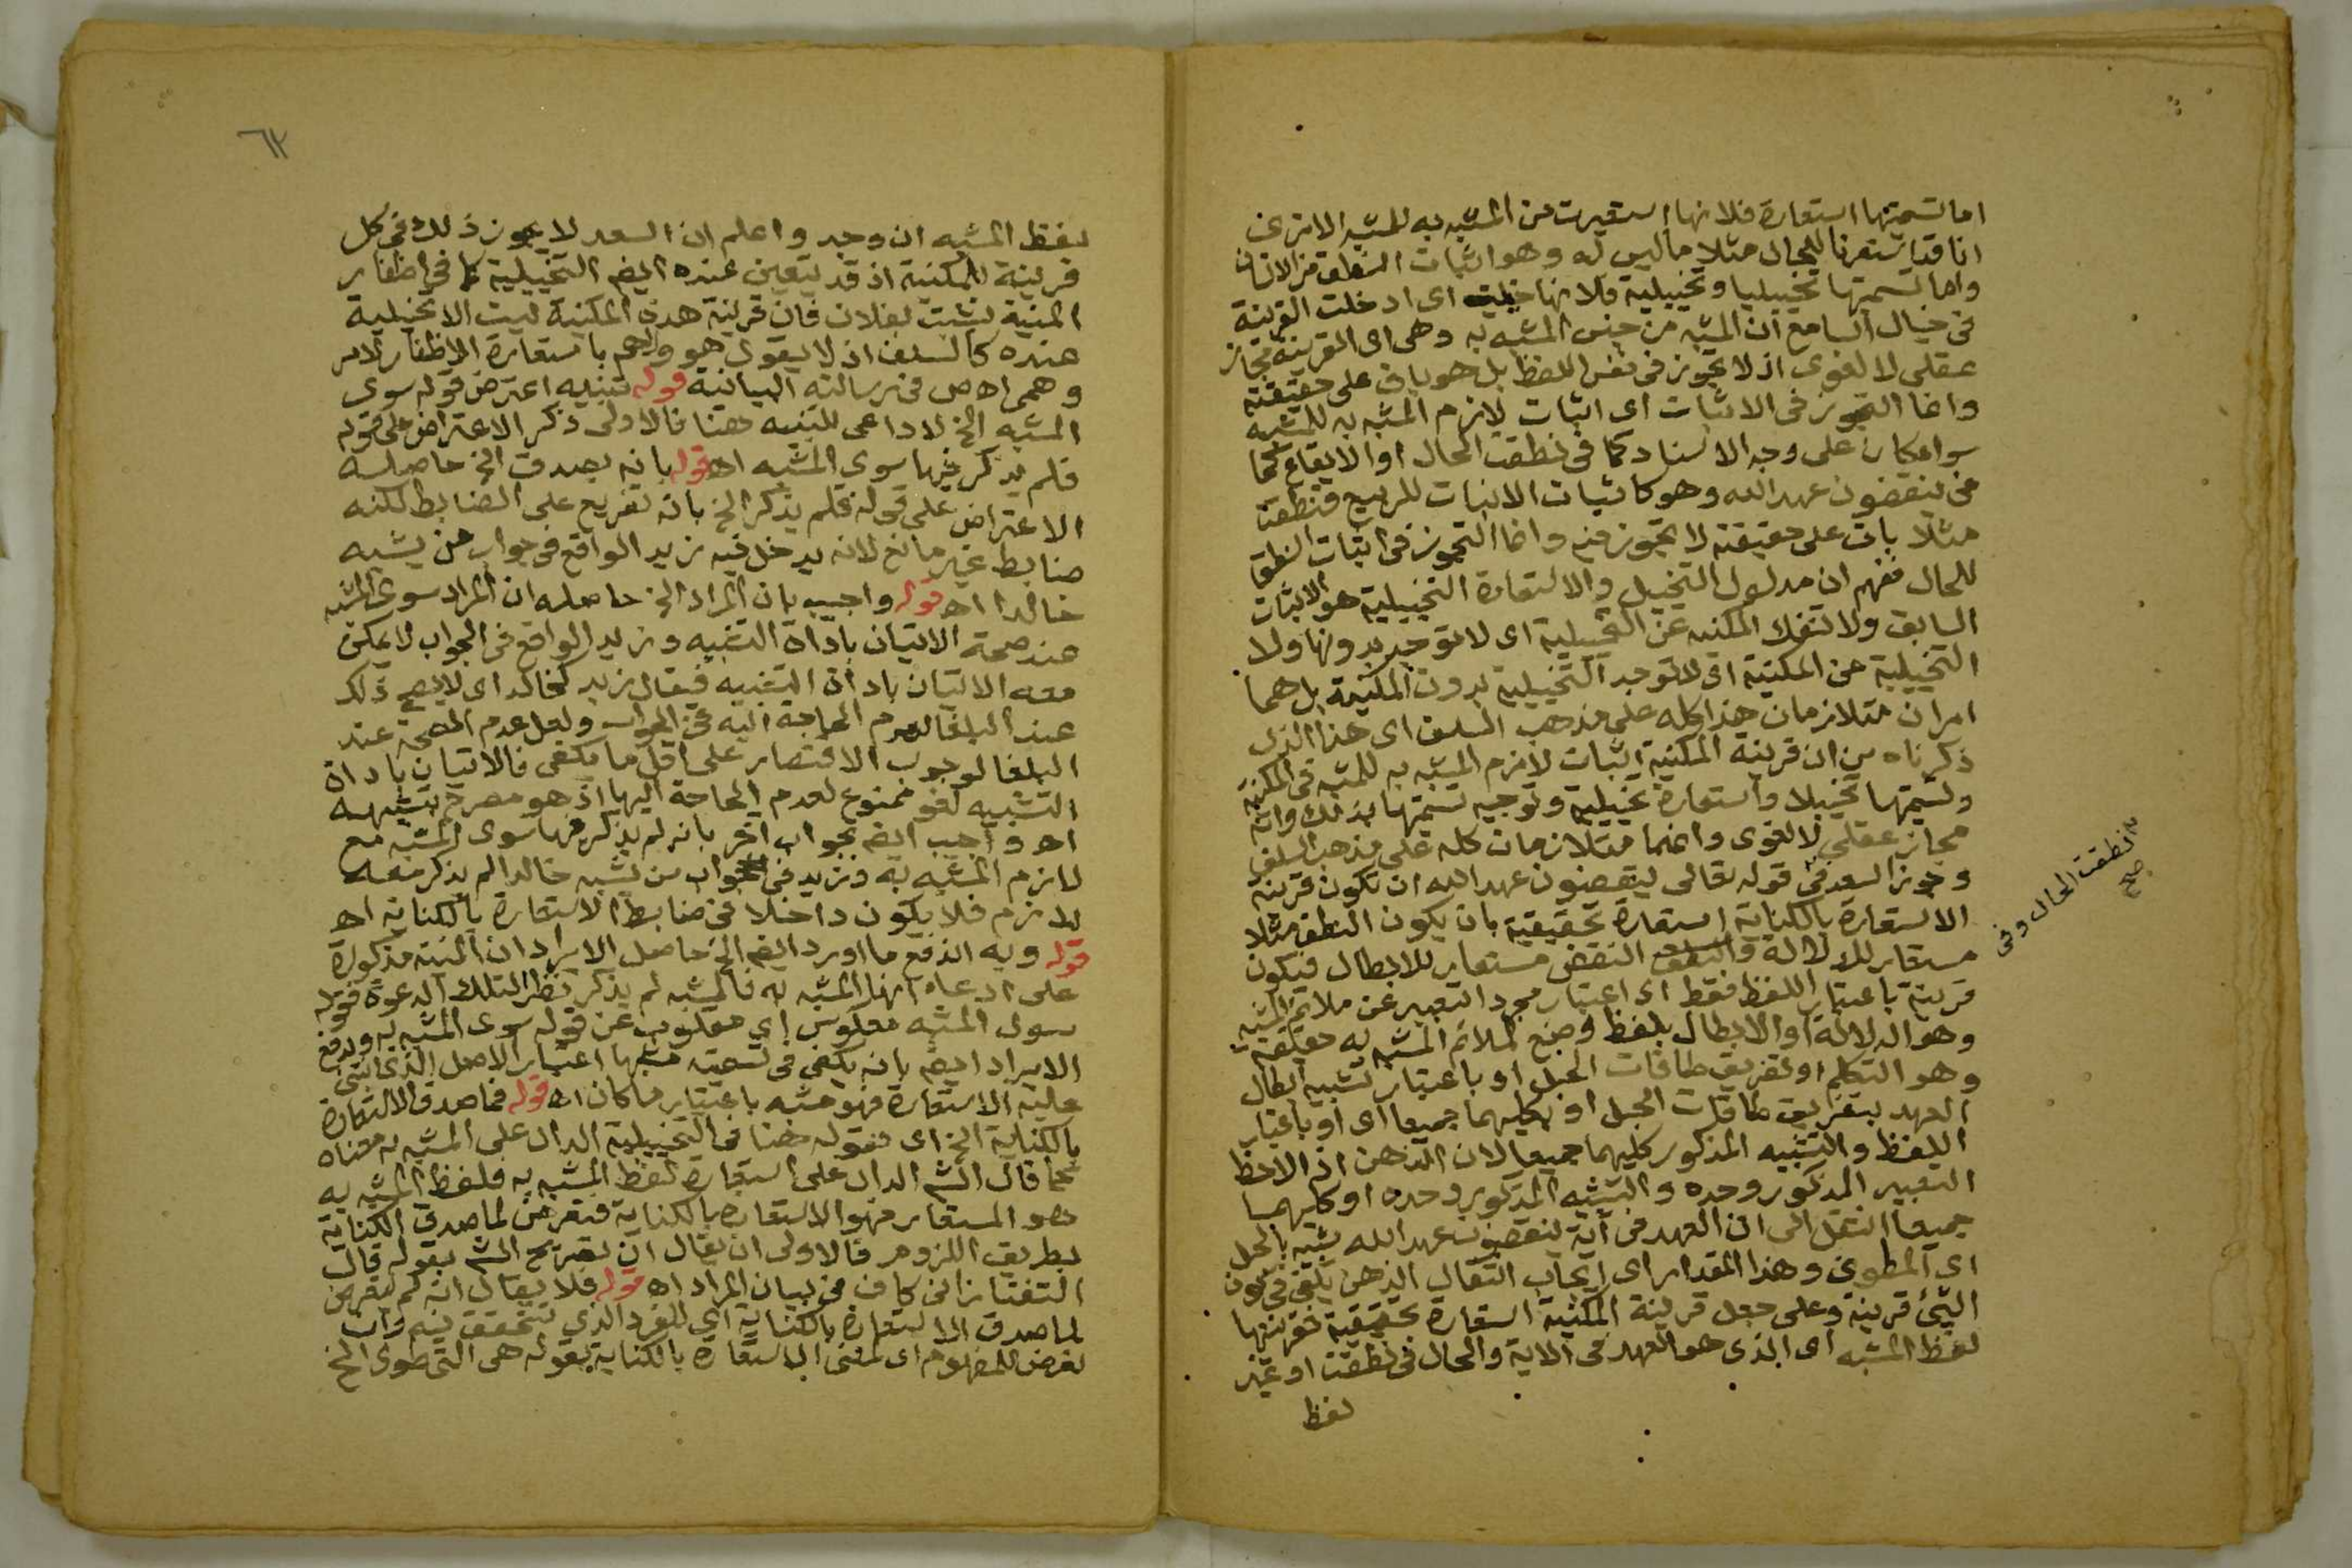 اما تسميتها استعارة فلانها استعيرت من المشبه به للمشبه الا ترى
انا قد استعرنا للحال مثلا ما ليس له وهو اثبات النطق من الانسان
واما تسميتها تخييليا وتخييلية فلانها خيلت اى ادخلت القرينة
فى خيال السامع ان المشبه من جنس المشبه به وهى اى القرينة مجاز
عقلى لا لغوى اذ لا تجوز فى نفس اللفظ بل هو باق على حقيقته
وانما التجوز فى الاثبات اى اثبات لازم المشبه به للمشبه
سواء كان على وجه الاسناد كما فى نطقت الحال او الايقاع كما
فى ينقضون عهد الله وهو كاثبات الانبات للربيع فنطقت
مثلا باق على حقيقته لا تجوز فيه وانما التجوز فى اثبات النطق
للحال ففهم ان مدلول التخييل والاستعارة التخييلية هو الاثبات
السابق ولا تنفك المكنية عن التخييلية اى لا توجد بدونها ولا
التخييلية عن المكنية اى لا توجد التخييلية بدون المكنية بل هما
امران متلازمان هذا كله على مذهب السلف اى هذا الذى
ذكرناه من ان قرينة المكنية اثبات لازم المشبه به للمشبه فى المكنية
وتسميتها تخييلا واستعارة تخييلية وتوجيه تسميتها بذلك وانه
مجاز عقلى لا لغوى وانهما متلازمان كله على مذهب السلف
وجوز السعد فى قوله تعالى ينقضون عهد الله ان تكون قرينة
الاستعارة بالكناية استعارة تحقيقية بان يكون النطق مثلا
مستعار للدلالة والنقض مستعار للابطال فيكون
قرينة باعتبار اللفظ فقط اى اعتبار مجرد التعبير عن ملائم المشبه
وهو الدلالة او الابطال بلفظ وضع لملائم المشبه به حقيقة
وهو التكلم او تفريق طاقات الحبل او باعتبار تشبيه ابطال
العهد بتفريق طاقات الحبل او بكليهما جميعا اى او باعتبار
اللفظ والتشبيه المذكور كليهما جميعا لان الذهن اذا لاحظ
التعبير المذكور وحده والتشبيه المذكور وحده او كليهما
جميعا انتقل الى ان العهد فى آية ينقضون عهد الله شبه بالحبل
اى المطوى وهذا المقدار اى ايجاب انتقال الذهن يكفى فى كون
الشئ قرينة وعلى جعل قرينة المكنية استعارة تحقيقية فقرينتها
لفظ المشبه اى الذى هو العهد فى الاية والحال فى نطقت او غير
لفظ
نطقت الحال وفى
صح
٦٢
لفظ المشبه ان وجد واعلم ان السعد لا يجوز ذلك فى كل
قرينة للمكنية اذ قد يتعين عنده ايضا التخييلية كما فى اظفار
المنية نشبت بفلان فان قرينة هذه المكنية ليست الا تخييلية
عنده كالسلف اذ لا يقول هو ولا هم باستعارة الاظفار لامر
وهمى اه ص فى رسالته البيانية قوله تنبيه اعترض قوله سوى
المشبه الخ لا داعى للتنبيه هنا فالاولى ذكر الاعتراض على قوله
فلم يذكر فيها سوى المشبه اه قوله بانه يصدق الخ حاصله
الاعتراض على قوله فلم يذكر الخ بانه تفريع على الضابط لكنه
ضابط غير مانع لانه يدخل فيه زيد الواقع فى جواب من يشبه
خالدا اه قوله واجيب بان المراد الخ حاصله ان المراد سوى المشبه
عند صحة الاتيان باداة التشبيه وزيد الواقع فى الجواب لا يمكن
معه الاتيان باداة التشبيه فيقال زيد كخالد اى لا يصح ذلك
عند البلغا لعدم الحاجة اليه فى الجواب ولعل عدم الصحة عند
البلغا لوجوب الاقتصار على اقل ما يكفى فالاتيان باداة
التشبيه لغو ممنوع لعدم الحاجة اليها اذ هو مصرح بتشبيهه
اه واجيب ايضا بجواب اخر بانه لم يذكر فيها سوى المشبه مع
لازم المشبه به وزيد فى جواب من يشبه خالدا لم يذكر معه
لازم فلا يكون داخلا فى ضابط الاستعارة بالكناية اه
قوله وبه اندفع ما اورد ايضا الخ حاصل الايراد ان المنية مذكورة
على ادعاء انها المشبه به فالمشبه لم يذكر نظرا لتلك الدعوة فقوله
سوى المشبه معكوس اى مقلوب عن قوله سوى المشبه به ويدفع
الايراد ايضا بانه يكفى فى تسميته مشبها اعتبار الاصل الذى انبنى
عليه الاستعارة فهو مشبه باعتبار ما كان اه قوله فما صدق الاستعارة
بالكناية الخ اى فقوله هنا فى التخييلية الدال على المشبه به معناه
كما قال الش الدال على استعارة لفظ المشبه به فلفظ المشبه به
هو المستعار فهو الاستعارة بالكناية فتعرض لما صدق الكناية
بطريق اللزوم فالاولى ان يقال ان تصريح الش بقوله قال
التفتازانى كاف فى بيان المراد اه قوله فلا يقال انه لم يتعرض
لما صدق الاستعارة بالكناية اى للفرد الذى تتحقق فيه وان
تعرض للمفهوم اى لمعنى الاستعارة بالكناية بقوله هى التى طوى الخ